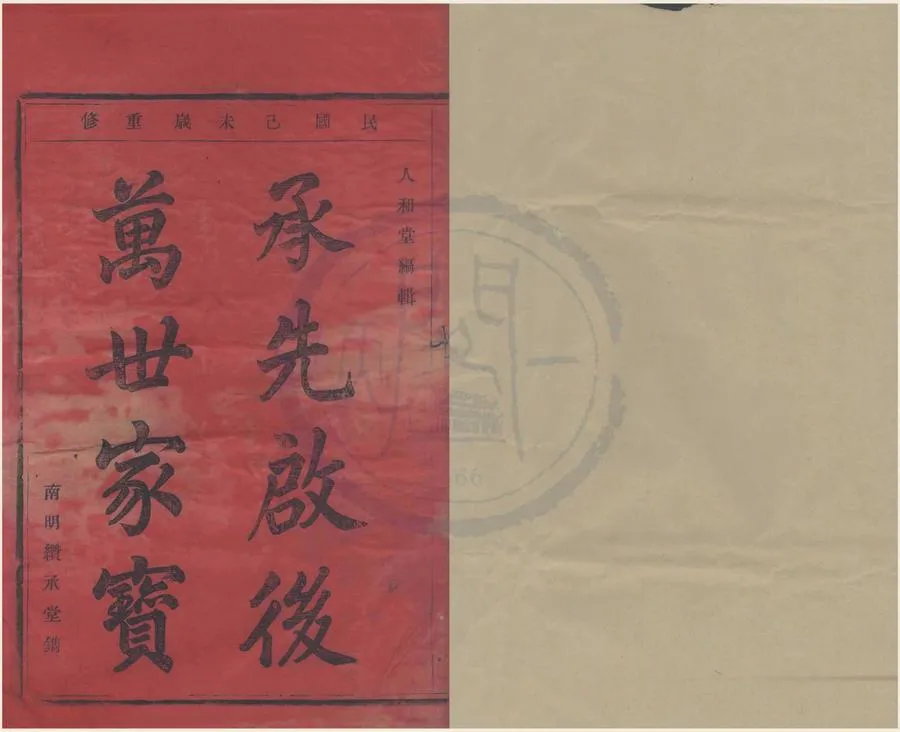 民國己未歲重修
人和堂編輯
承先啟後
萬世家寶
南明纘承堂鐫